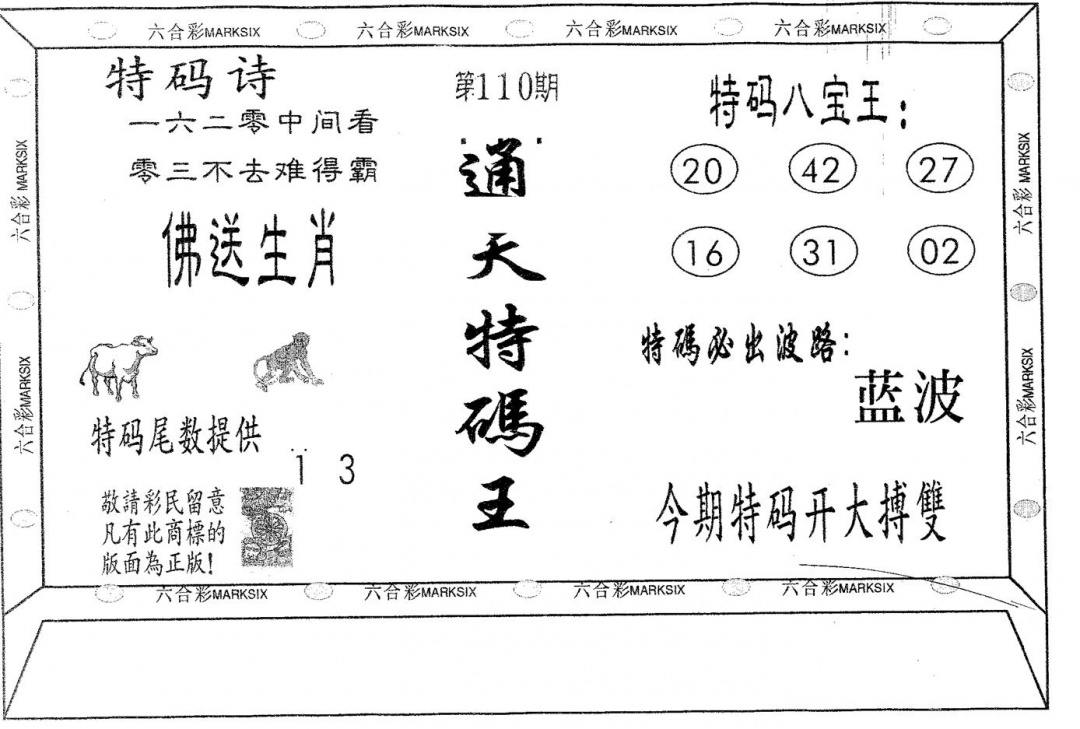 六合彩MARKSIX 六合彩MARKSIX 六合彩MARKSIX 六合彩MARKSIX
特码诗
一六二零中间看
零三不去难得霸
佛送生肖
特码尾数提供
1 3
敬請彩民留意
凡有此商標的
版面為正版!
第110期
通
天
特
碼
王
特码八宝王:
20 42 27
16 31 02
特碼必出波路:
蓝波
今期特码开大搏雙
六合彩 MARKSIX
六合彩MARKSIX
六合彩 MARKSIX
六合彩MARKSIX
六合彩MARKSIX 六合彩MARKSIX 六合彩MARKSIX 六合彩MARKSIX